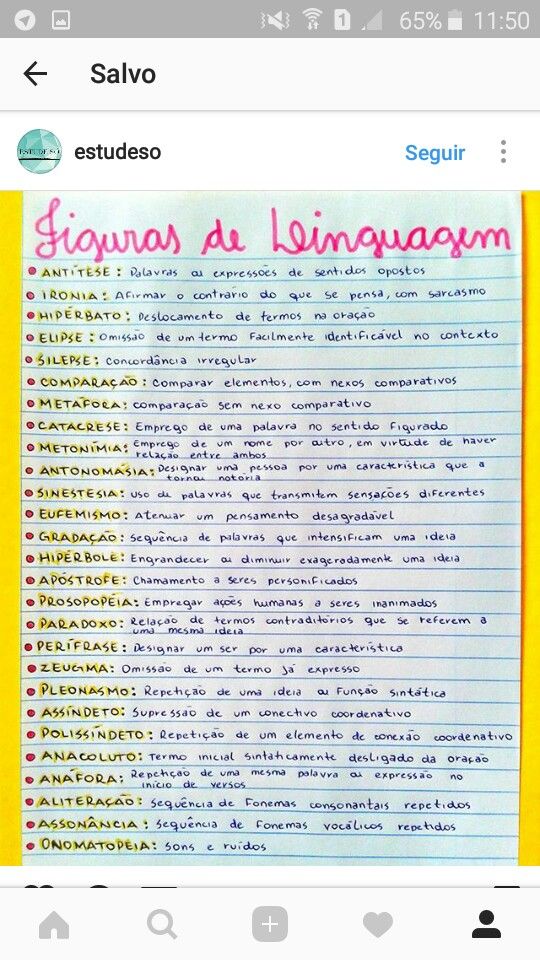 65% 11:50
Salvo
ESTUDE SÓ
estudeso
Seguir
Figuras de Linguagem
ANTÍTESE: Palavras ou expressões de sentidos opostos
IRONIA: Afirmar o contrário do que se pensa, com sarcasmo
HIPÉRBATO: Deslocamento de termos na oração
ELIPSE: Omissão de um termo facilmente identificável no contexto
SILEPSE: Concordância irregular
COMPARAÇÃO: Comparar elementos, com nexos comparativos
METÁFORA: comparação sem nexo comparativo
CATACRESE: Emprego de uma palavra no sentido figurado
METONÍMIA: Emprego de um nome por outro, em virtude de haver
relação entre ambos
ANTONOMÁSIA: Designar uma pessoa por uma característica que a
torna notória
SINESTESIA: uso de palavras que transmitem sensações diferentes
EUFEMISMO: Atenuar um pensamento desagradável
GRADAÇÃO: Sequência de palavras que intensificam uma ideia
HIPÉRBOLE: Engrandecer ou diminuir exageradamente uma ideia
APÓSTROFE: Chamamento a seres personificados
PROSOPOPÉIA: Empregar ações humanas a seres inanimados
PARADOXO: Relação de termos contraditórios que se referem a
uma mesma ideia
PERÍFRASE: Designar um ser por uma característica
ZEUGMA: Omissão de um termo já expresso
PLEONASMO: Repetição de uma ideia ou função sintática
ASSÍNDETO: Supressão de um conectivo coordenativo
POLISSÍNDETO: Repetição de um elemento de conexão coordenativo
ANACOLUTO: Termo inicial sintaticamente desligado da oração
ANÁFORA: Repetição de uma mesma palavra ou expressão no
início de versos
ALITERAÇÃO: Sequência de fonemas consonantais repetidos
ASSONÂNCIA: Sequência de fonemas vocálicos repetidos
ONOMATOPEIA: Sons e ruídos